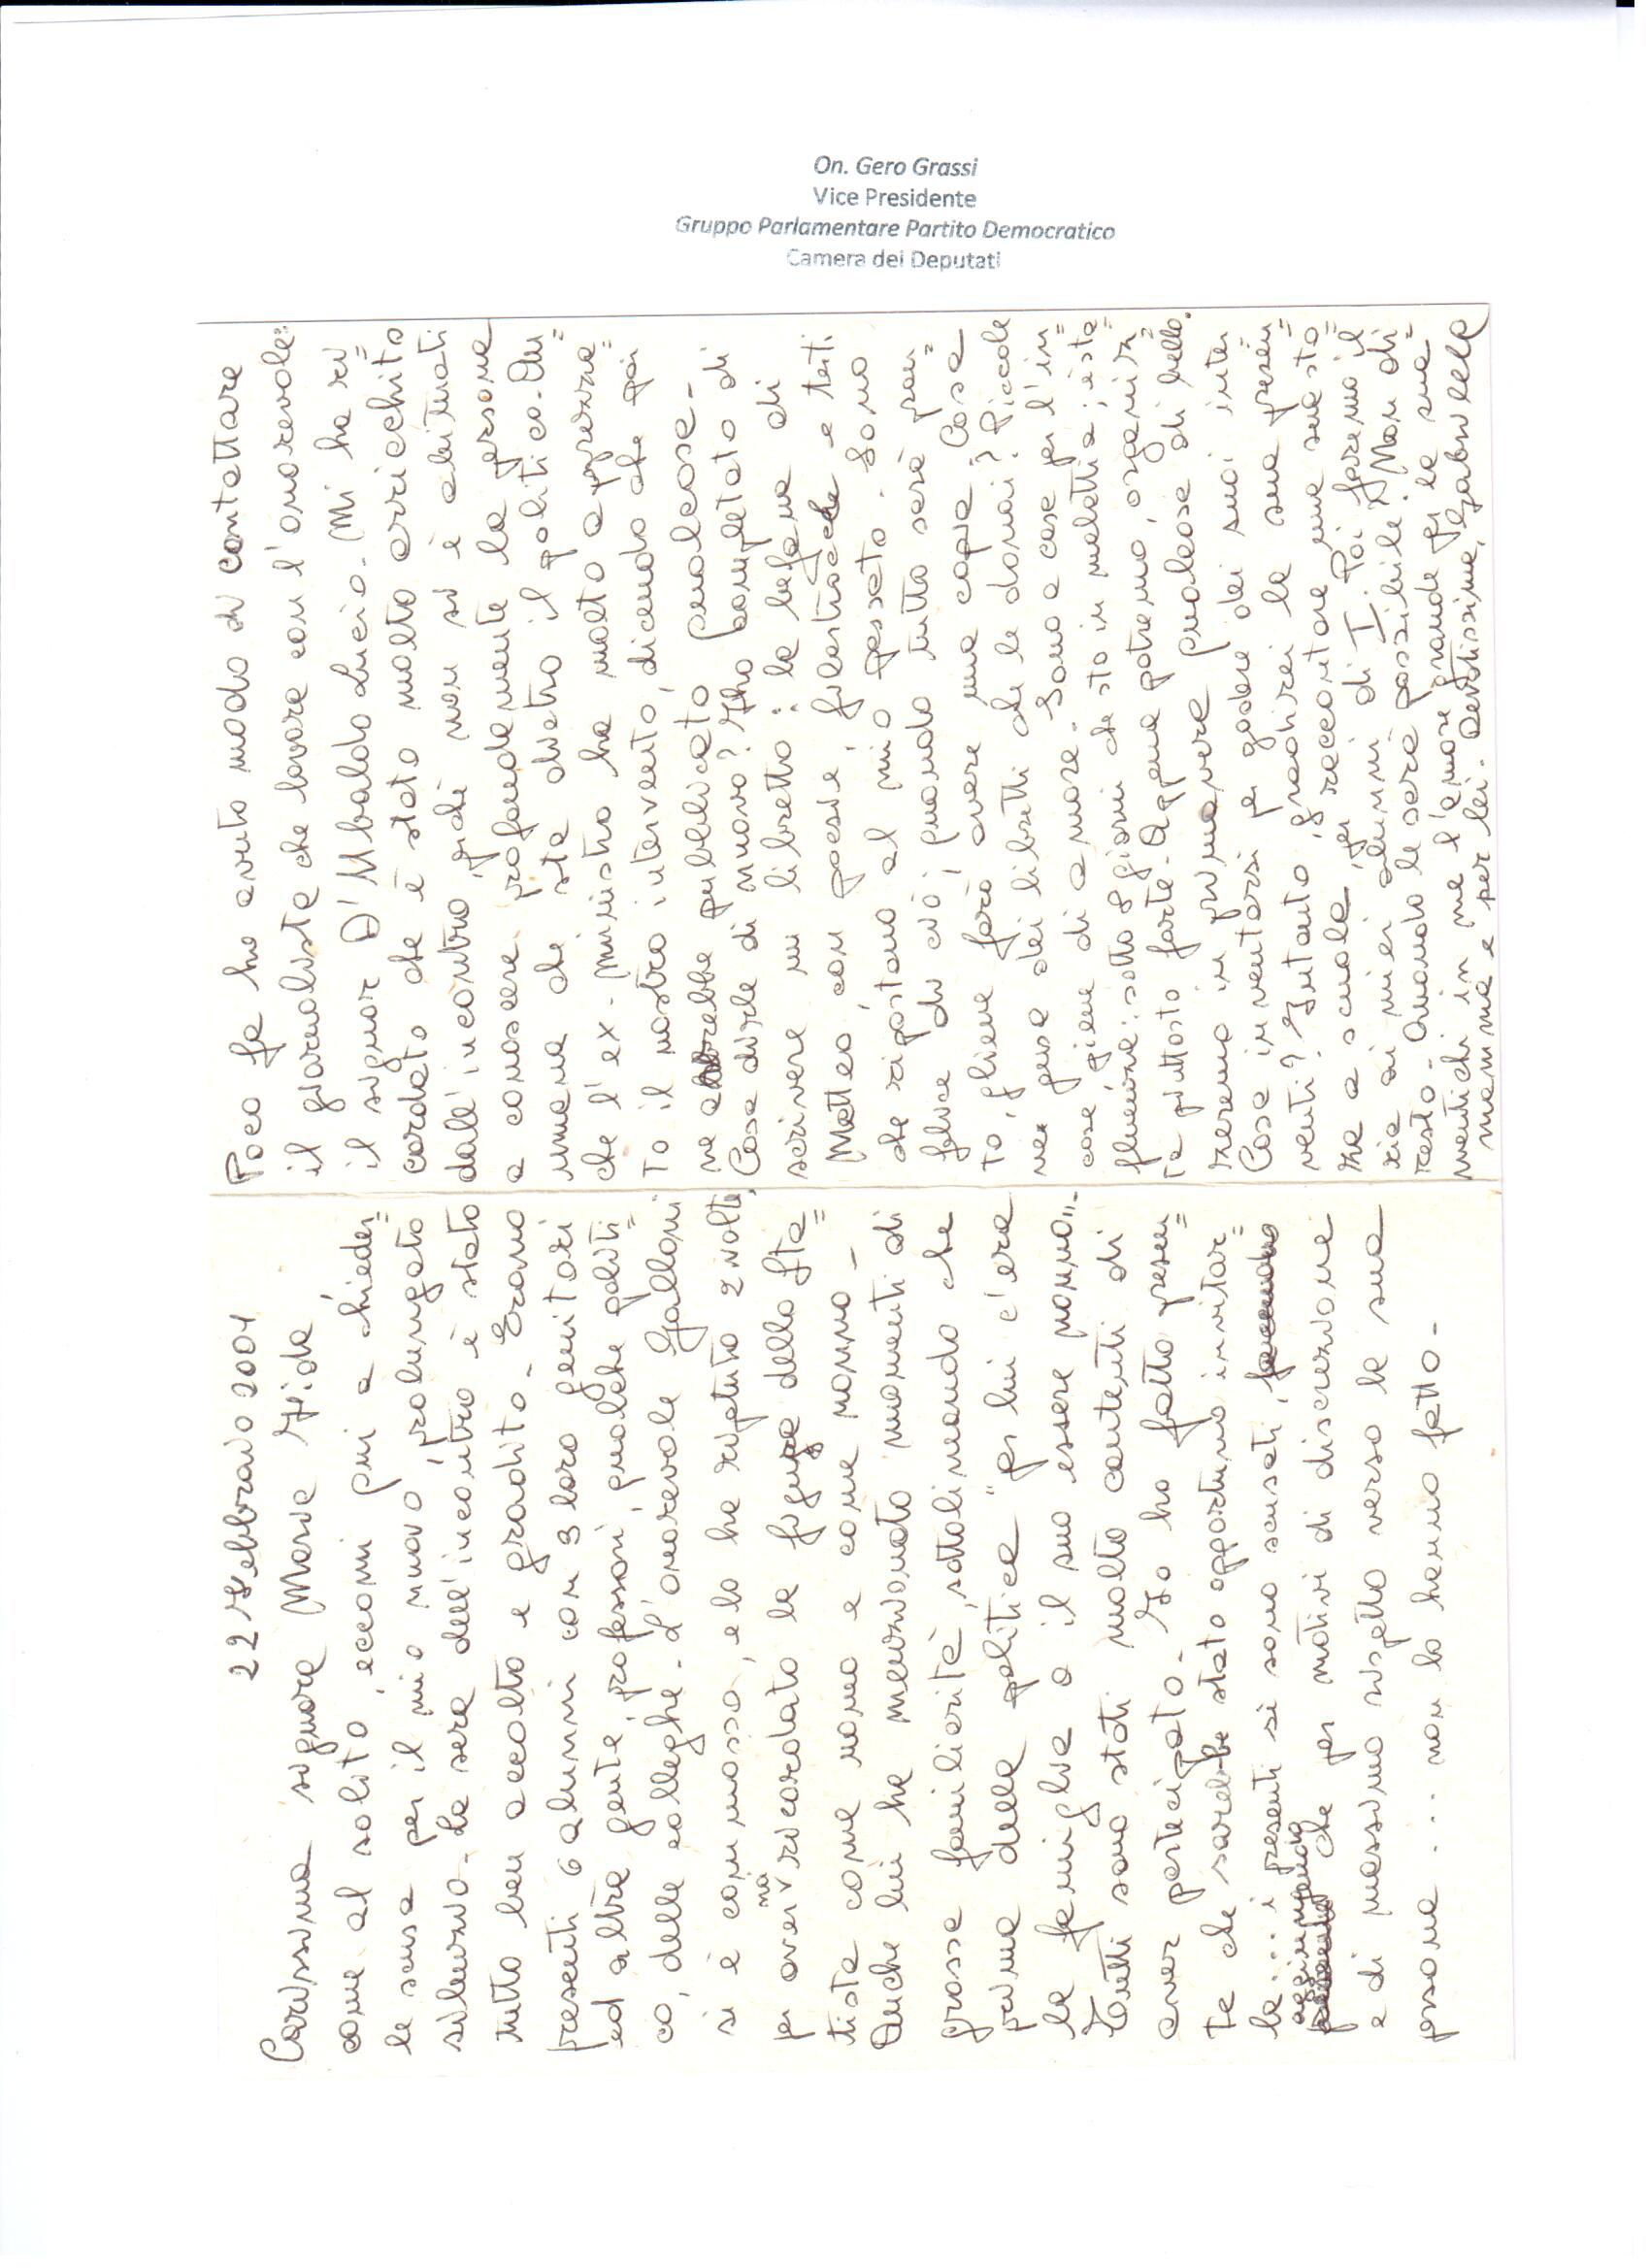 On. Gero Grassi
Vice Presidente
Gruppo Parlamentare Partito Democratico
Camera dei Deputati
22 Febbraio 2001
Carissima signora Maria Fida
come al solito, eccomi qui a chieder=
le scusa per il mio nuovo, prolungato
silenzio. La sera dell'incontro è stato
tutto ben accolto e gradito. Erano
presenti 6 alunni con 3 loro genitori
ed altra gente, professori, qualche politi=
co, delle colleghe. L'onorevole Galloni
si è commosso, e lo ha ripetuto 2 volte,
per avermi ricordato la figura dello sta=
tista come uomo e come nonno -
Anche lui ha menzionato momenti di
grossa familiarità, sottolineando che
prima della politica "per lui c'era
la famiglia o il suo essere nonno".
Tutti sono stati molto contenti di
aver partecipato. Io ho fatto presen=
te che sarebbe stato opportuno invitar=
la... i presenti si sono scusati,
aggiungendo che per motivi di discrezione
e di massimo rispetto verso la sua
persona... non lo hanno fatto -
Poco fa ho avuto modo di contattare
il giornalista che lavora con l'onorevole:
il signor D'Ubaldo Lucio. Mi ha ri=
cordato che è stato molto arricchito
dall'incontro, poiché non si è abituati
a conoscere profondamente la persona
umana che sta dietro il politico. An=
che l'ex-ministro ha molto apprezza=
to il nostro intervento, dicendo che poi
ne avrebbe pubblicato qualcosa -
Cosa dirle di nuovo? Ho completato di
scrivere un libretto: la befana di
Matteo, con poesie, filastrocche e testi
che riportano al mio passato. Sono
felice di ciò; quando tutto sarà pron=
to, gliene farò avere una copia. Cosa
ne pensa dei libretti che le donai? Piccole
cose piene di amore. Sono a casa per l'in=
fluenza: sotto 8 giorni che sto in malattia; è sta=
ta piuttosto forte. Appena potremo, organiz=
zeremo in primavera qualcosa di bello.
Cosa inventarsi per godere dei suoi inter
venti? Intanto, gradirei la sua presen=
za a scuola, per raccontare una sua sto=
ria ai miei alunni di I. Poi faremo il
resto. Quando le sarà possibile? Non di=
mentichi in me l'amore grande per la sua
mamma e per lei. Devotissima, Gabriella